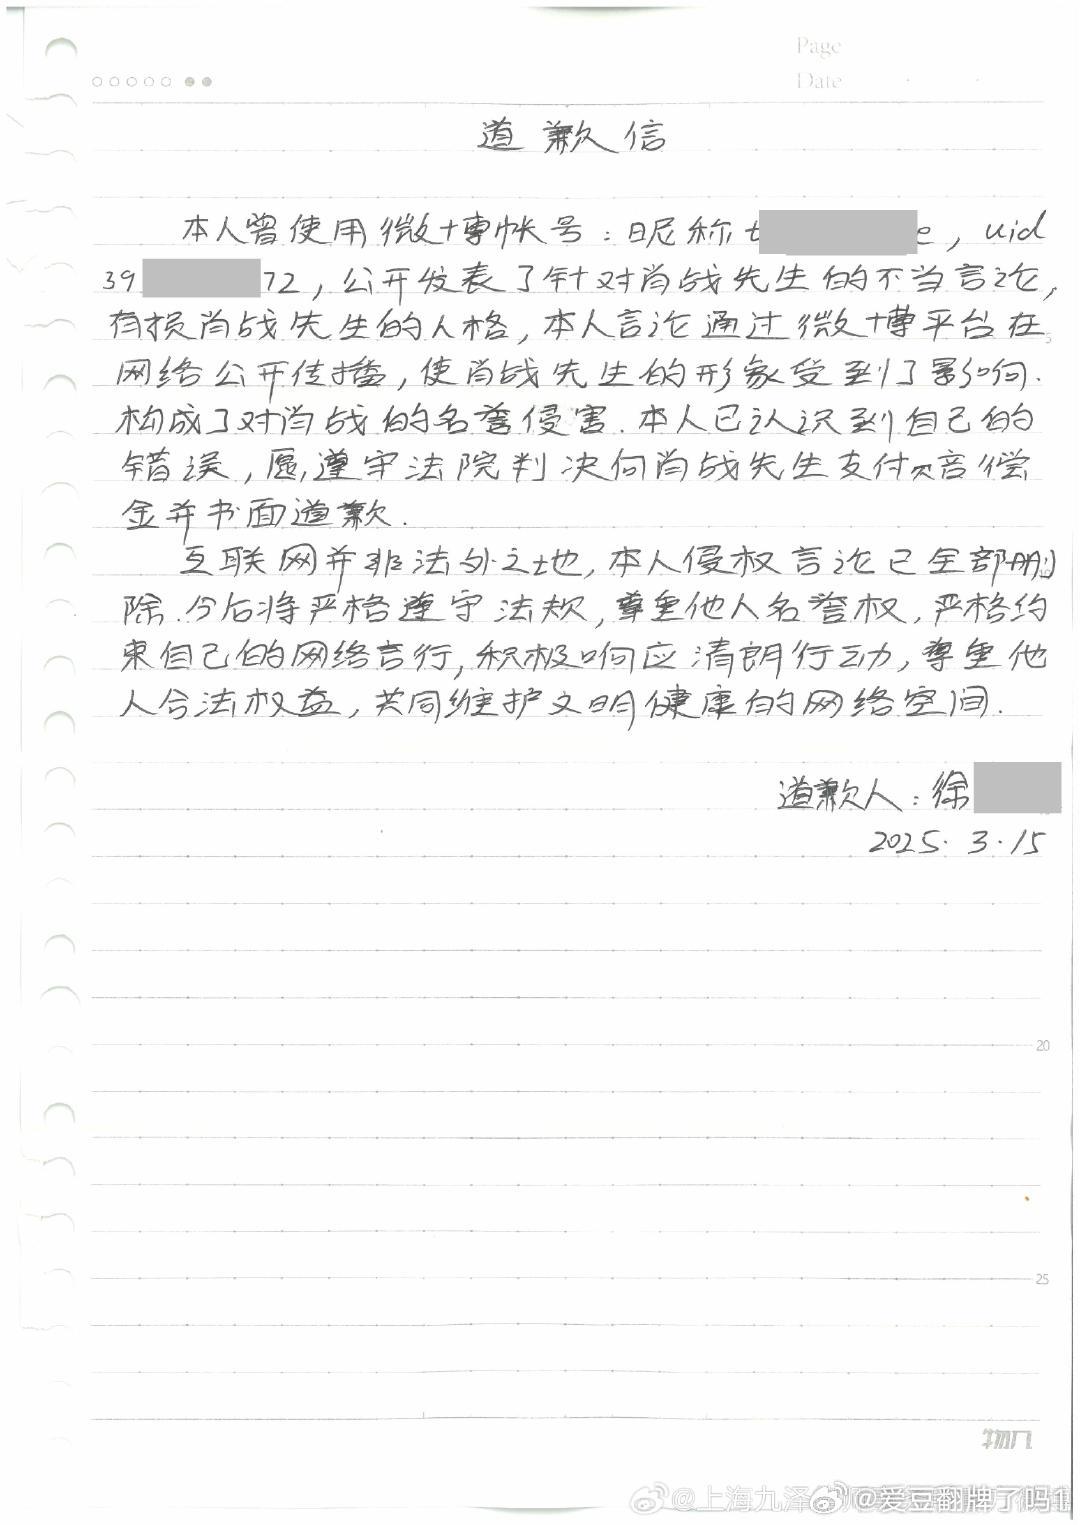 Page
Date
道歉信
本人曾使用微博帐号：昵称t e，uid
39 72，公开发表了针对肖战先生的不当言论，
有损肖战先生的人格，本人言论通过微博平台在
网络公开传播，使肖战先生的形象受到了影响.
构成了对肖战的名誉侵害.本人已认识到自己的
错误，愿遵守法院判决向肖战先生支付赔偿
金并书面道歉.
互联网并非法外之地，本人侵权言论已全部删
除.今后将严格遵守法规，尊重他人名誉权，严格约
束自己的网络言行，积极响应清朗行动，尊重他
人合法权益，共同维护文明健康的网络空间.
道歉人：徐
2025.3.15
20
25
物几
@上海九泽 @爱豆翻牌了吗